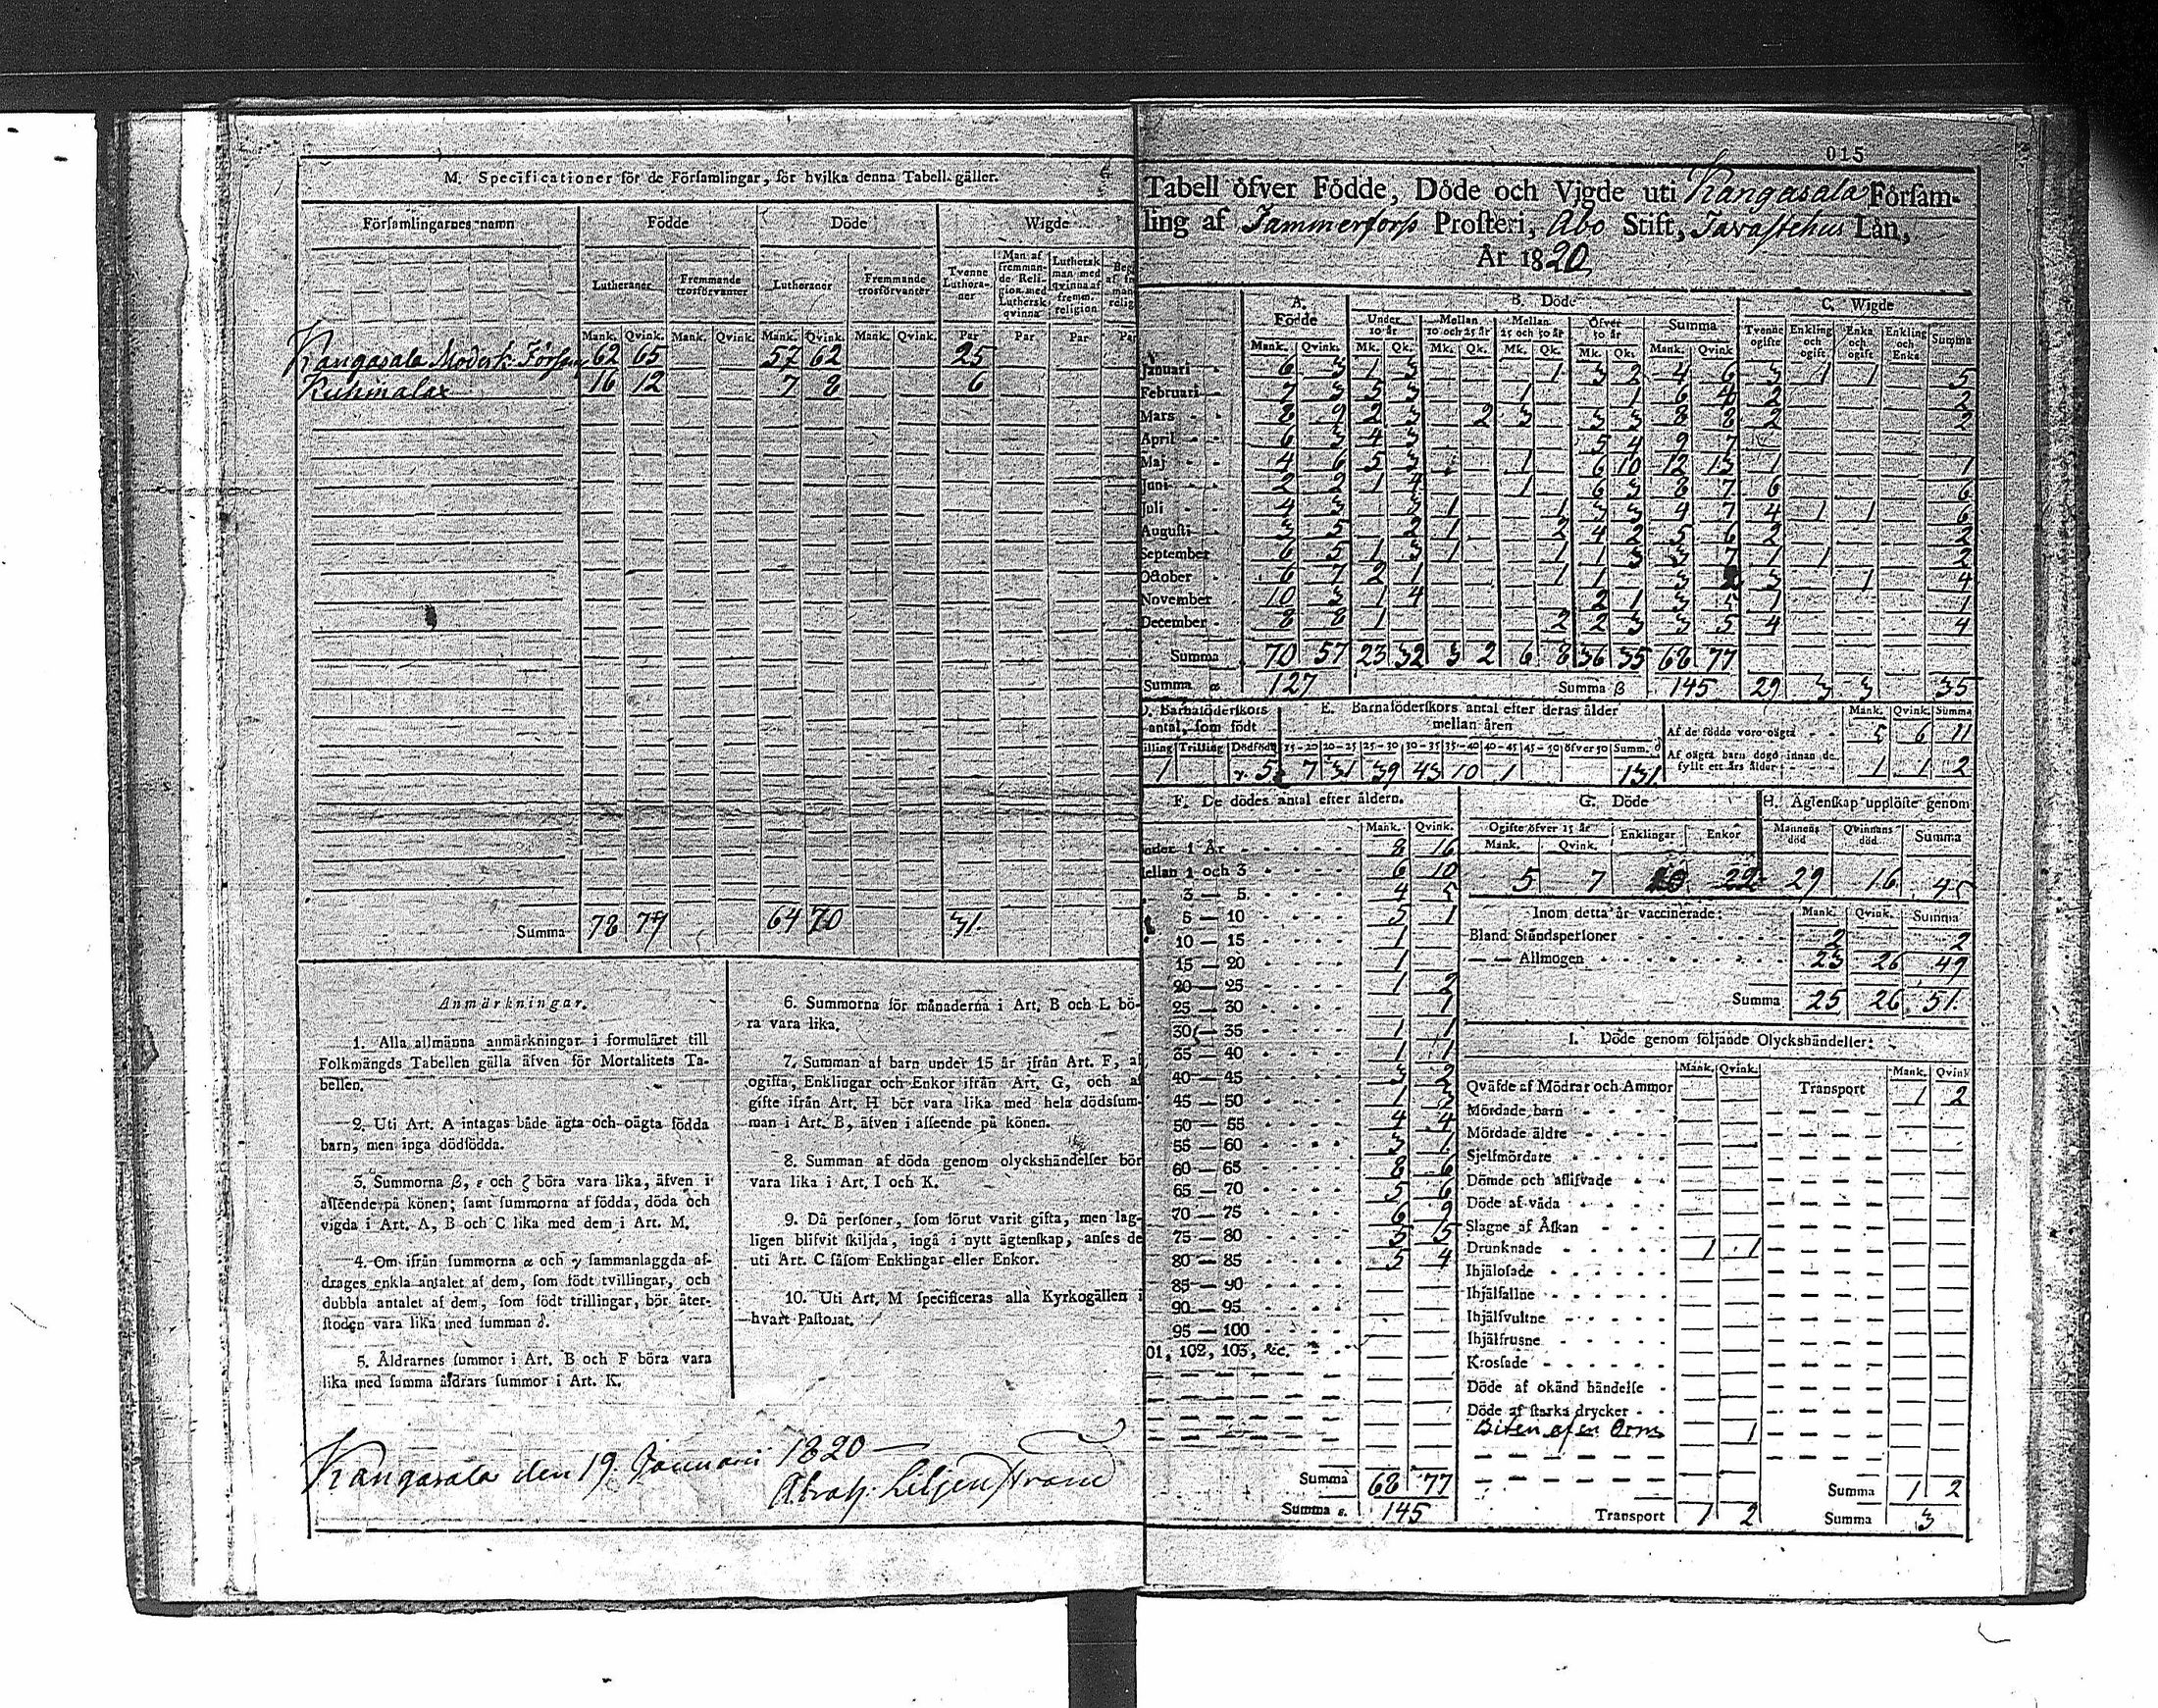 M. Specificationer för de Församlingar, för hvilka denna Tabell gäller.
Församlingarnes namn Födde Döde Wigde
Lutheraner Fremmande trosförvanter Lutheraner Fremmande trosförvanter Tvenne Lutheraner Man af fremmande Religion med Luthersk qvinna Luthersk man med qvinna af fremm. religion
Mank. Qvink. Mank. Qvink. Mank. Qvink. Mank. Qvink. Par Par Par
Kangasala Moderk. Förs. 62 65 57 62 25
Kuhmalax 16 12 7 8 6
Summa 78 77 64 70 31.
Anmärkningar.
1. Alla allmänna anmärkningar i formuläret till
Folkmängds Tabellen gälla äfven för Mortalitets Ta-
bellen.
2. Uti Art. A intagas både ägta och oägta födda
barn, men inga dödfödda.
3. Summorna β, ε och ζ böra vara lika, äfven i
afseende på könen; samt summorna af födda, döda och
vigda i Art. A, B och C lika med dem i Art. M.
4. Om ifrån summorna α och γ sammanlaggda af-
drages enkla antalet af dem, som födt tvillingar, och
dubbla antalet af dem, som födt trillingar, bör åter-
stoden vara lika med summan δ.
5. Åldrarnes summor i Art. B och F böra vara
lika med samma åldrars summor i Art. K.
6. Summorna för månaderna i Art. B och L bö-
ra vara lika.
7. Summan af barn under 15 år ifrån Art. F, af
ogifta, Enklingar och Enkor ifrån Art. G, och af
gifte ifrån Art. H bör vara lika med hela dödssum-
man i Art. B, äfven i afseende på könen.
8. Summan af döda genom olyckshändelser bör
vara lika i Art. I och K.
9. Då personer, som förut varit gifta, men lag-
ligen blifvit skiljda, ingå i nytt ägtenskap, anses de
uti Art. C såsom Enklingar eller Enkor.
10. Uti Art. M specificeras alla Kyrkogällen i
hvart Pastorat.
Kangasala den 19 Januari 1820
Abrah. Liljenstrand
015
Tabell öfver Födde, Döde och Vigde uti Kangasala Försam-
ling af Tammerfors Prosteri, Åbo Stift, Tavastehus Län,
År 1820
A. Födde B. Döde C. Wigde
Under 10 år Mellan 10 och 25 år Mellan 25 och 50 år Öfver 50 år Summa Tvenne ogifte Enkling och ogift Enka och ogift Enkling och Enka Summa
Mank. Qvink. Mk. Qk. Mk. Qk. Mk. Qk. Mk. Qk. Mank. Qvink
Januari 6 3 1 3 1 3 2 4 6 3 1 1 5
Februari 2
Mars 8 9 2 3 2 3 3 3 8 8 2 2
April
Maj 1 6 10 12 13 1 1
Juni 6 6
Juli 4 1 1 6
Augusti 2 2
September 1 1 2
October 3 1 4
November 10 1 4 2 1 3 5 1 1
December 8 8 1 2 2 3 3 5 4 4
Summa 70 57 23 32 3 2 6 8 36 35 68 77
Summa α 127 Summa β 145 29 3 3 35
D. Barnaföderskors antal, som födt
Trilling Dödfödt
1 γ. 5
E. Barnaföderskors antal efter deras ålder mellan åren
15-20 20-25 25-30 30-35 35-40 40-45 45-50 öfver 50 Summ. δ
7 31 39 43 10 1 131.
Mank. Qvink. Summa
Af de födde voro oägta 5 6 11
Af oägta barn dogo innan de fyllt ett års ålder 1 1 2
F. De dödes antal efter åldern.
Mank. Qvink.
under 1 År 8 16
Mellan 1 och 3 6 10
3 — 5 4 5
5 — 10 5 1
10 — 15 1
15 — 20 1
20 — 25 1 2
25 — 30 1
30 — 35 1 1
35 — 40 1 1
40 — 45 3 2
45 — 50 1 3
50 — 55 4 4
55 — 60 3 1
60 — 65 8 6
65 — 70 5 6
70 — 75 6 9
75 — 80 3 5
80 — 85 5 4
85 — 90
90 — 95
95 — 100
101, 102, 103, &c.
Summa 68 77
Summa ε. 145
G. Döde
Ogifte öfver 15 år Enklingar Enkor
Mank. Qvink.
5 7 22
H. Ägtenskap upplöste genom
Mannens död Qvinnans död Summa
29 16 45
Inom detta år vaccinerade: Mank. Qvink. Summa
Bland Ståndspersoner 2 2
— — Allmogen 23 26 49
Summa 25 26 51.
I. Döde genom följande Olyckshändelser:
Mank. Qvink. Mank. Qvink
Qväfde af Mödrar och Ammor Transport 1 2
Mördade barn
Mördade äldre
Sjelfmördare
Dömde och aflifvade
Döde af våda
Slagne af Åskan
Drunknade 1 1
Ihjälosade
Ihjälfallne
Ihjälsvultne
Ihjälfrusne
Krossade
Döde af okänd händelse
Döde af starka drycker
Biten af en Orm 1
Summa 1 2
Transport 1 2 Summa 3